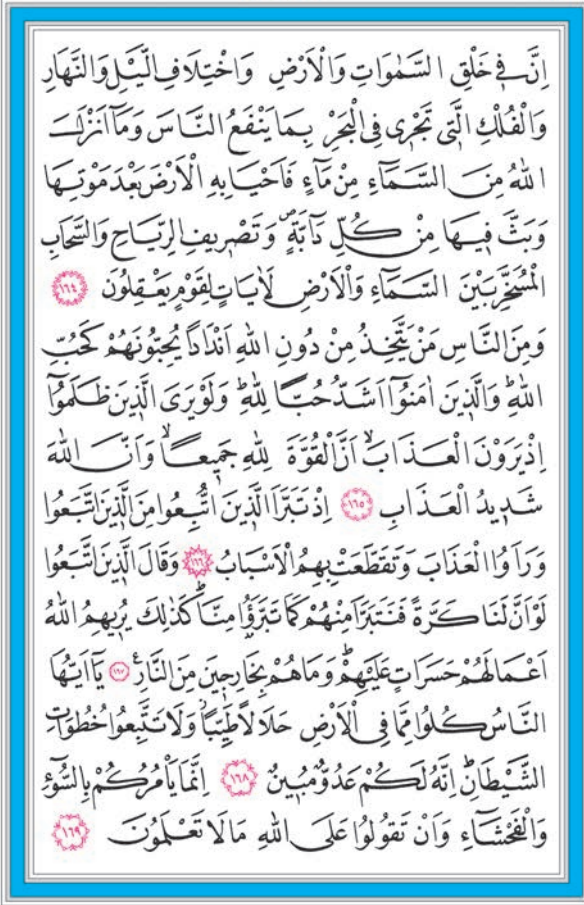 اِنَّ فٖى خَلْقِ السَّمٰوَاتِ وَالْاَرْضِ وَاخْتِلَافِ الَّيْلِ وَالنَّهَارِ
وَالْفُلْكِ الَّتٖى تَجْرٖى فِى الْبَحْرِ بِمَا يَنْفَعُ النَّاسَ وَمَٓا اَنْزَلَ
اللّٰهُ مِنَ السَّمَٓاءِ مِنْ مَٓاءٍ فَاَحْيَا بِهِ الْاَرْضَ بَعْدَ مَوْتِهَا
وَبَثَّ فٖيهَا مِنْ كُلِّ دَٓابَّةٍࣕ وَتَصْرٖيفِ الرِّيَاحِ وَالسَّحَابِ
الْمُسَخَّرِ بَيْنَ السَّمَٓاءِ وَالْاَرْضِ لَاٰيَاتٍ لِقَوْمٍ يَعْقِلُونَ ﴿١٦٤﴾
وَمِنَ النَّاسِ مَنْ يَتَّخِذُ مِنْ دُونِ اللّٰهِ اَنْدَادًا يُحِبُّونَهُمْ كَحُبِّ
اللّٰهِؕ وَالَّذٖينَ اٰمَنُٓوا اَشَدُّ حُبًّا لِلّٰهِؕ وَلَوْ يَرَى الَّذٖينَ ظَلَمُٓوا
اِذْ يَرَوْنَ الْعَذَابَۙ اَنَّ الْقُوَّةَ لِلّٰهِ جَمٖيعًاۙ وَاَنَّ اللّٰهَ
شَدٖيدُ الْعَذَابِ ﴿١٦٥﴾ اِذْ تَبَرَّاَ الَّذٖينَ اتُّبِعُوا مِنَ الَّذٖينَ اتَّبَعُوا
وَرَاَوُا الْعَذَابَ وَتَقَطَّعَتْ بِهِمُ الْاَسْبَابُ ﴿١٦٦﴾ وَقَالَ الَّذٖينَ اتَّبَعُوا
لَوْ اَنَّ لَنَا كَرَّةً فَنَتَبَرَّاَ مِنْهُمْ كَمَا تَبَرَّؤُ۫ا مِنَّاؕ كَذٰلِكَ يُرٖيهِمُ اللّٰهُ
اَعْمَالَهُمْ حَسَرَاتٍ عَلَيْهِمْؕ وَمَا هُمْ بِخَارِجٖينَ مِنَ النَّارِࣖ ﴿١٦٧﴾ يَٓا اَيُّهَا
النَّاسُ كُلُوا مِمَّا فِى الْاَرْضِ حَلَالًا طَيِّبًاؗ وَلَا تَتَّبِعُوا خُطُوَاتِ
الشَّيْطَانِؕ اِنَّهُ لَكُمْ عَدُوٌّ مُبٖينٌ ﴿١٦٨﴾ اِنَّمَا يَاْمُرُكُمْ بِالسُّٓوءِ
وَالْفَحْشَٓاءِ وَاَنْ تَقُولُوا عَلَى اللّٰهِ مَا لَا تَعْلَمُونَ ﴿١٦٩﴾